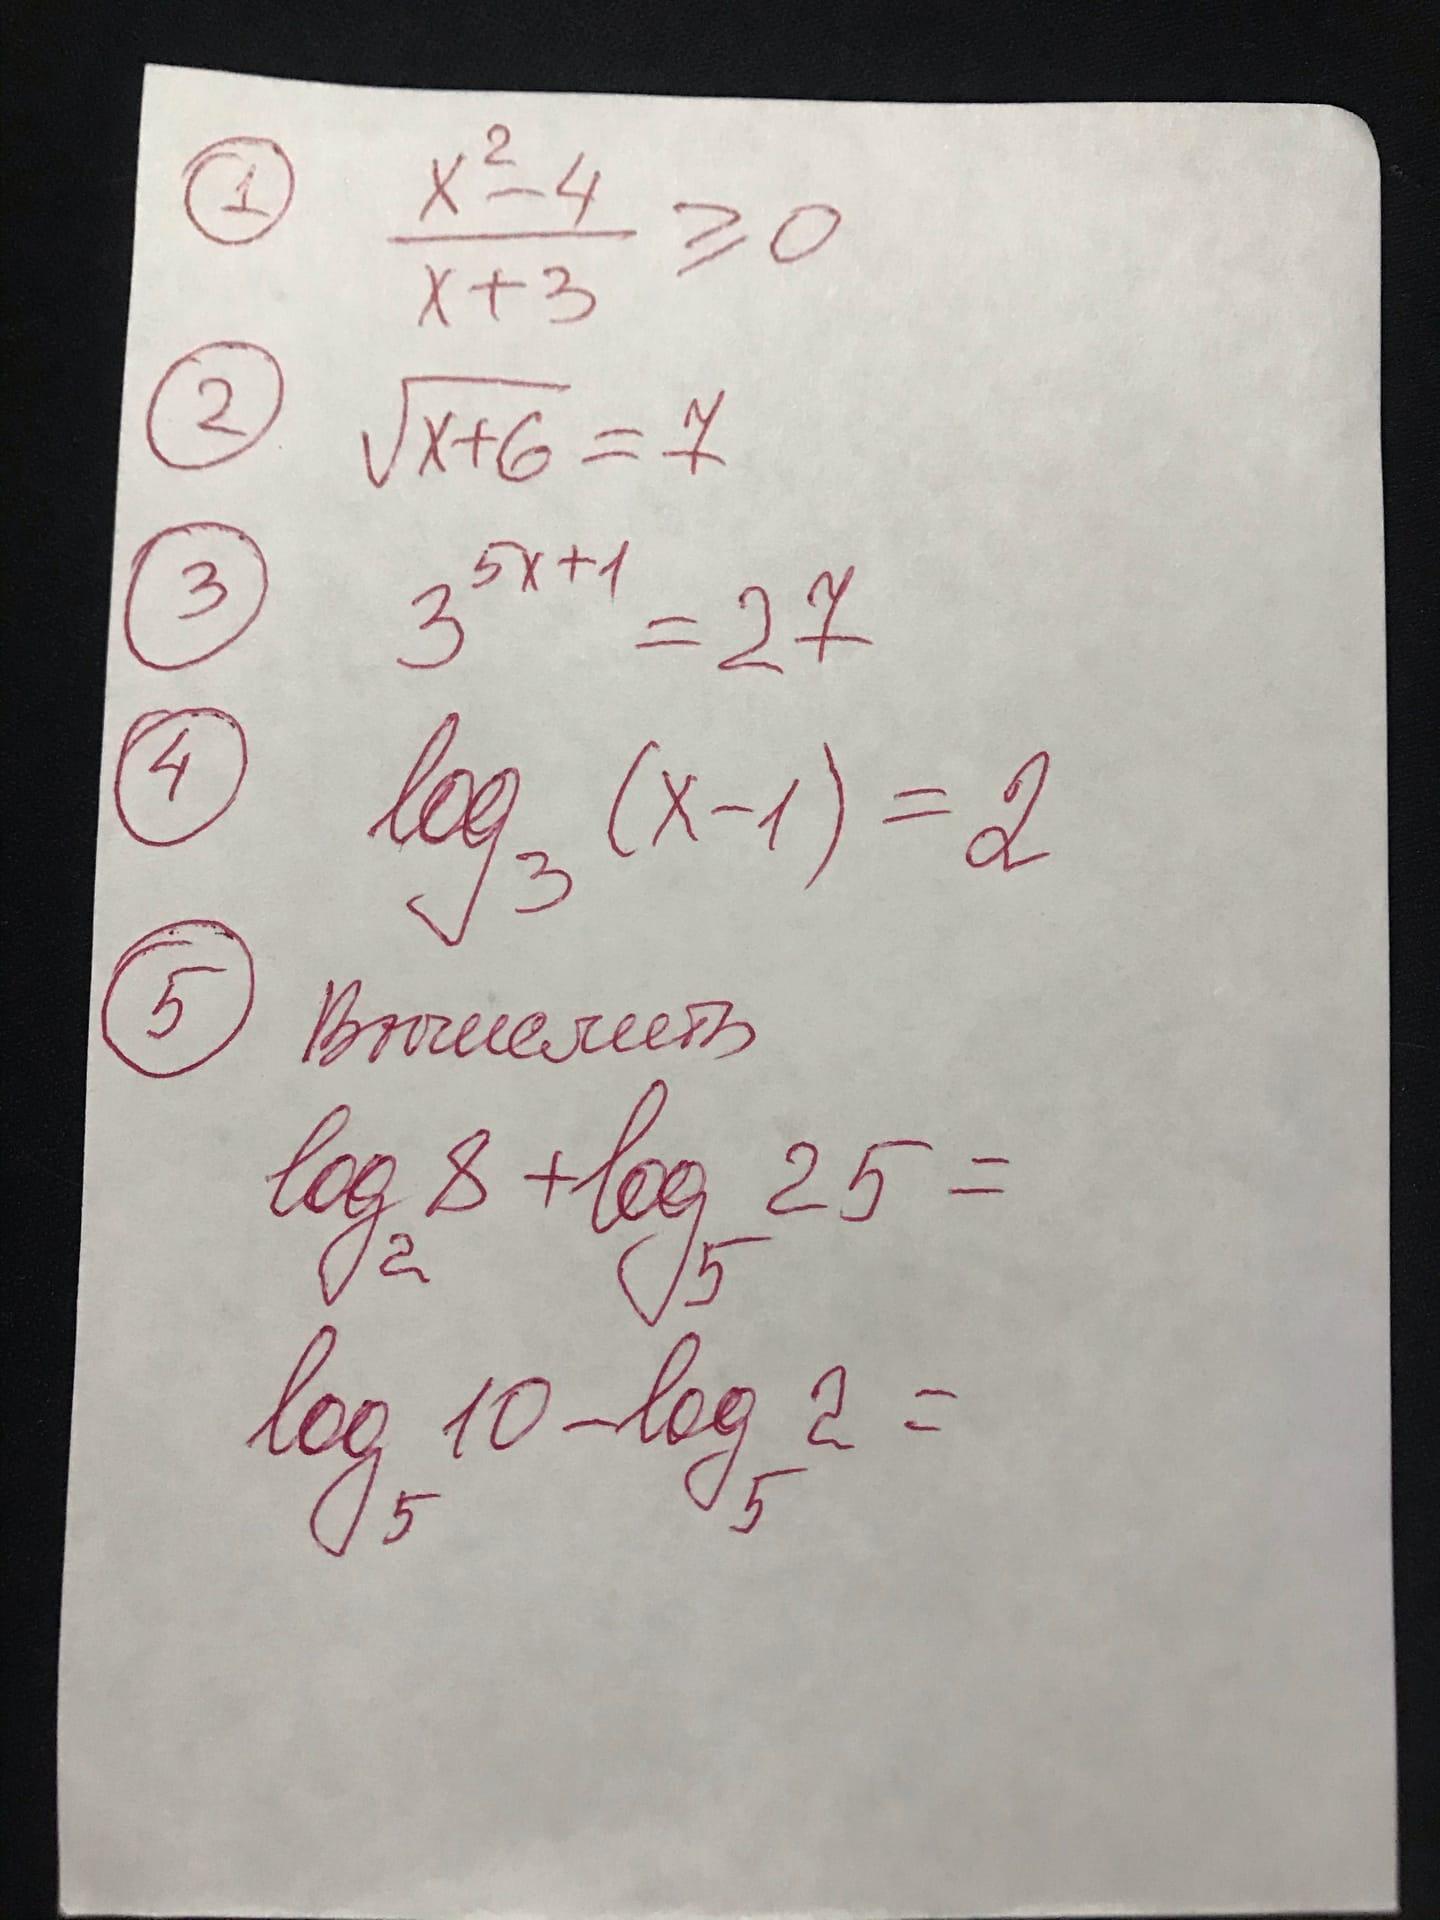 ① (x²-4)/(x+3) ≥ 0
② √(x+6) = 7
③ 3^(5x+1) = 27
④ log₃ (x-1) = 2
⑤ Вычислить
log₂ 8 + log₅ 25 =
log₅ 10 - log₅ 2 =